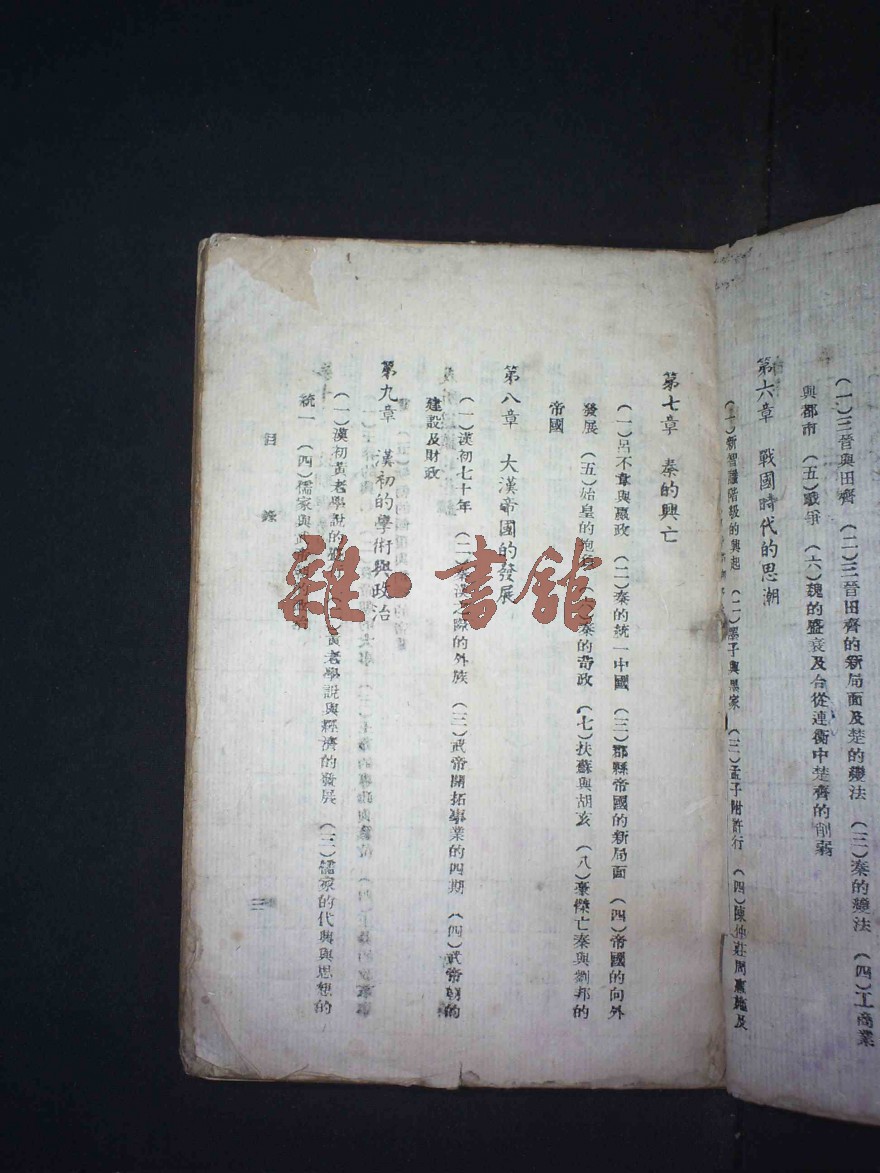 (一)三晉與田齊 (二)三晉田齊的新局面及楚的變法 (三)秦的變法 (四)工商業
與都市 (五)戰爭 (六)魏的盛衰及合從連衡中楚齊的削弱
第六章 戰國時代的思潮
(一)新智識階級的興起 (二)墨子與墨家 (三)孟子附許行 (四)陳仲莊周惠施及
第七章 秦的興亡
(一)呂不韋與嬴政 (二)秦的統一中國 (三)郡縣帝國的新局面 (四)帝國的向外
發展 (五)始皇的 秦的苛政 (七)扶蘇與胡亥 (八)豪傑亡秦與劉邦的
帝國
第八章 大漢帝國的發展
(一)漢初七十年 (二)秦漢之際的外族 (三)武帝開拓事業的四期 (四)武帝朝的
建設及財政
第九章 漢初的學術與政治
(一)漢初黃老學說的 黃老學說與經濟的發展 (三)儒家的代興與思想的
統一 (四)儒家與
目錄
三
雜·書館